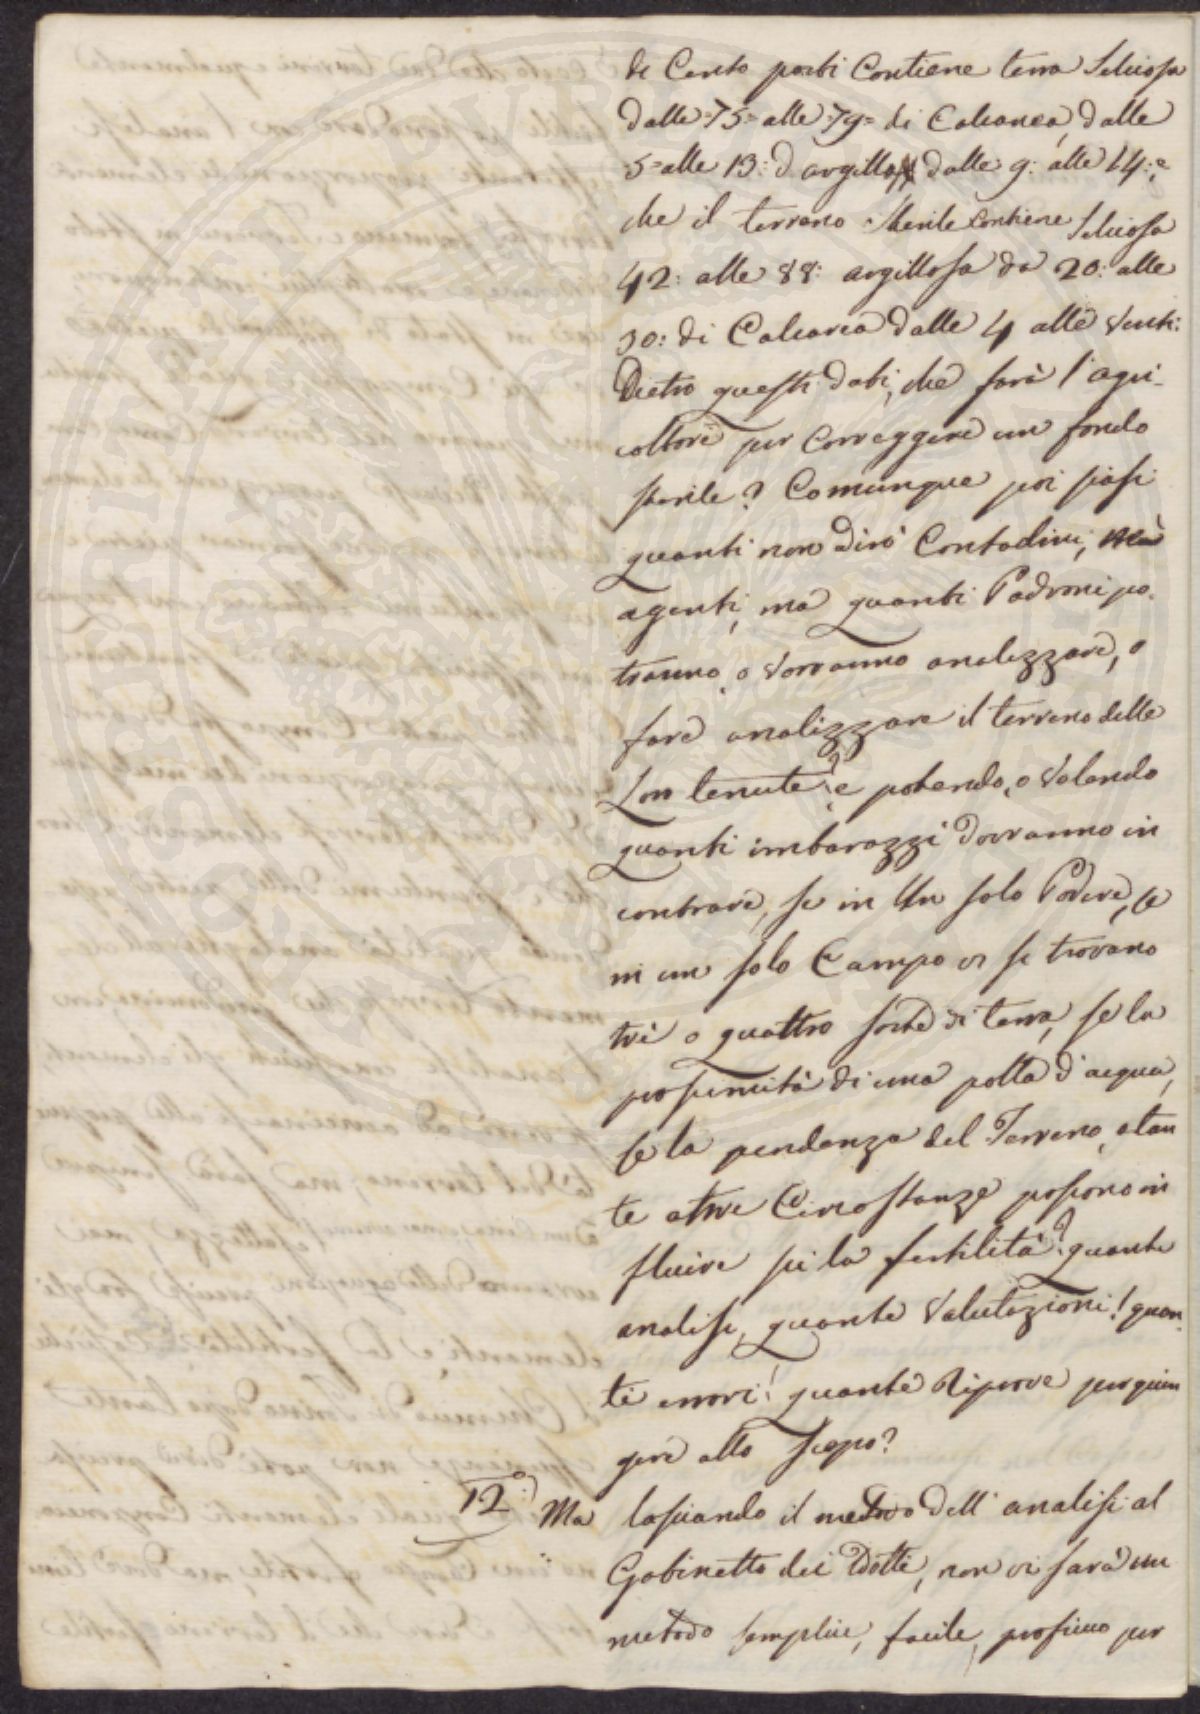 di Cento parti Contiene terra Selciosa
dalle =75= alle 79= di Calcarea, dalle
5= alle 13: d'argilla dalle 9: alle 14: e
che il terreno Sterile Contiene Selciosa
42: alle 88: argillosa da 20: alle
30: di Calcarea dalle 4 alle Venti:
Dietro questi dati, che farà l'agri-
coltore per Correggere un fondo
sterile? Comunque poi siasi
quanti non dirò Contadini, ma
agenti, ma quanti Padroni po-
tranno, o Vorranno analizzare, o
fare analizzare il terreno delle
Lor tenute? e potendo, o Volendo
quanti imbarazzi dovranno in
contrare, se in Un solo Podere, se
in un solo Campo vi si trovano
trè o quattro sorte di terra, se la
prossimità di una polla d'acqua,
se la pendenza del Terreno, e tan
te altre Circostanze possono in
fluire su la fertilità? quante
analisi, quante Valutazioni! quan-
ti errori! quante Riprove per giun
gere allo scopo?
12:° Ma lasciando il metodo dell'analisi al
Gabinetto dei Dotti, non vi sarà un
metodo semplice, facile, prossimo per